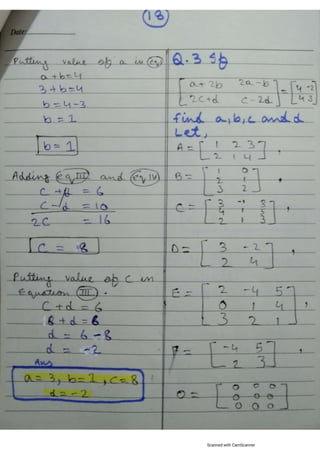 (13)
Date:
Putting value of a in eq
a + b = 4
3 + b = 4
b = 4 - 3
b = 1
b = 1
Adding Eq III and eq IV
C + d = 6
C - d = 10
2C = 16
C = 8
Putting value of C in
Equation III.
C + d = 6
8 + d = 6
d = 6 - 8
d = -2
Ans
a = 3, b = 1, c = 8
d = -2
Q.3
[ a + 2b 2a - b ] = [ 4 -2 ]
[ 2c + d c - 2d ] [ 4 3 ]
find a, b, c and d
Let,
A = [ 1 2 3 ] ,
[ 2 1 4 ]
B = [ 1 0 ] ,
[ 2 1 ]
[ 3 2 ]
C = [ 3 -1 3 ] ,
[ 4 1 5 ]
[ 2 1 3 ]
D = [ 3 -2 ] ,
[ 2 4 ]
E = [ 2 -4 5 ] ,
[ 0 1 4 ]
[ 3 2 1 ]
F = [ -4 5 ] ,
[ 2 3 ]
O = [ 0 0 0 ]
[ 0 0 0 ]
[ 0 0 0 ]
Scanned with CamScanner